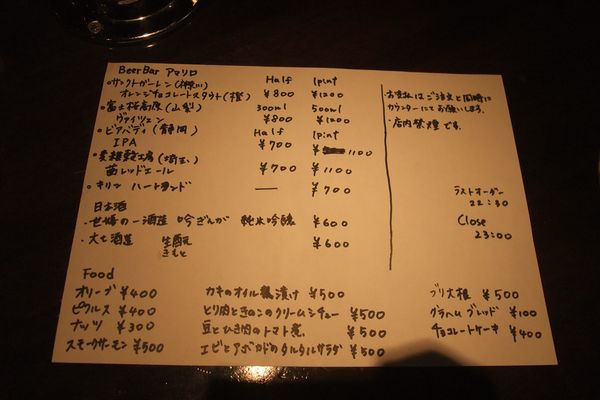 BeerBar アマリロ
Half 1pint
・サンクトガーレン(神奈川)
オレンジチョコレートスタウト(橙) ¥800 ¥1200
・富士桜高原(山梨) 300ml 500ml
ヴァイツェン ¥800 ¥1200
・ビアバディ(静岡) Half 1pint
IPA ¥700 ¥1100
(埼玉)
レッドエール ¥700 ¥1100
・キリン ハートランド — ¥700
日本酒
・世嬉の一酒造 吟ぎんが 純米吟醸 ¥600
・大七酒造 生酛 きもと ¥600
お支払はご注文と同時に
カウンターにてお願いします。
・店内禁煙です。
ラストオーダー
22:30
Close
23:00
Food
オリーブ ¥400
ピクルス ¥400
ナッツ ¥300
スモークサーモン ¥500
カキのオイル漬け ¥500
とり肉ときのこのクリームシチュー ¥500
豆とひき肉のトマト煮 ¥500
エビとアボカドのタルタルサラダ ¥500
ブリ大根 ¥500
グラハムブレッド ¥100
チョコレートケーキ ¥400